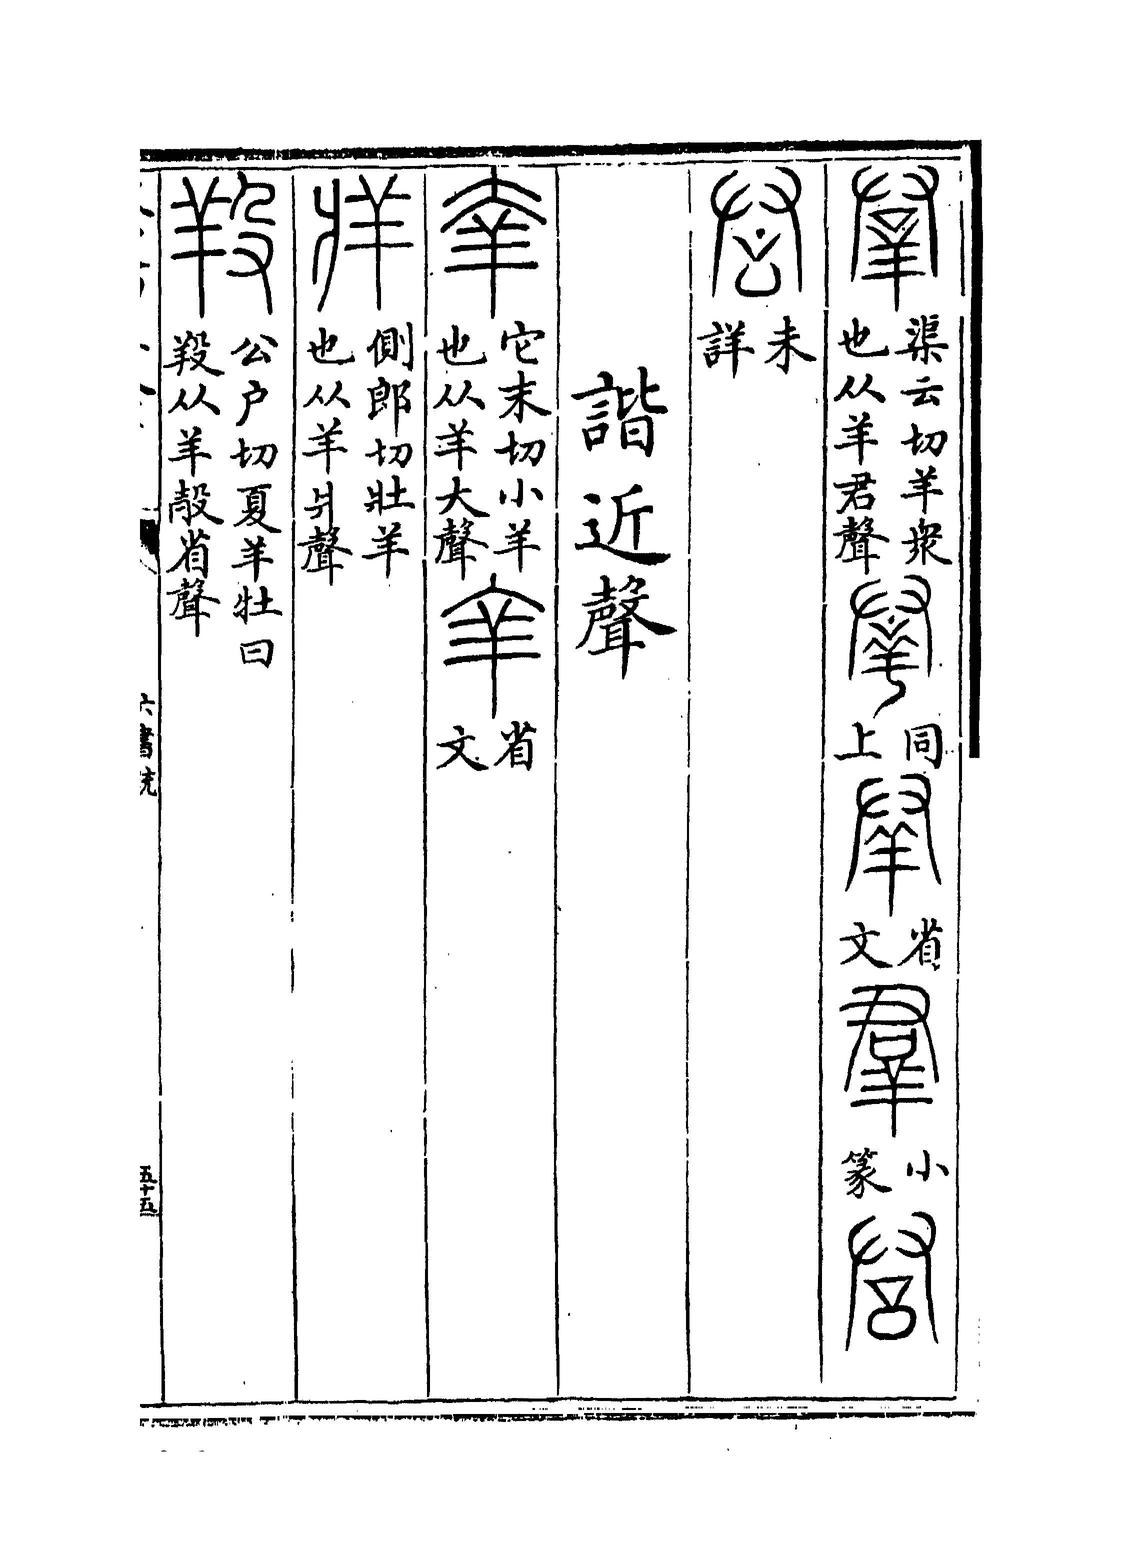 羣渠云切羊衆也从羊君聲羣同上羣省文羣小篆
未詳
諧近聲
羍它末切小羊也从羊大聲羍省文
牂側郎切壯羊也从羊爿聲
羖公户切夏羊牡曰羖从羊㱿省聲
六書統
五十五